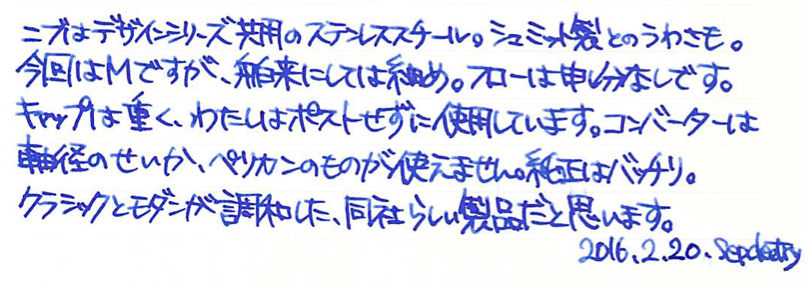 ニブはデザインシリーズ共用のステンレススチール。シュミット製とのうわさも。
今回はMですが、舶来にしては細め。フローは申し分なしです。
キャップは重く、わたしはポストせずに使用しています。コンバーターは
軸径のせいか、ペリカンのものが使えません。純正はバッチリ。
クラシックとモダンが調和した、同社らしい製品だと思います。
2016.2.20.